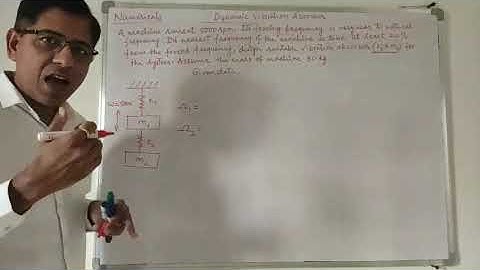 Numericals Dynamic Vibration Absorber
A machine runs at 5000 rpm. Its forcing frequency is very near to natural
frequency. If nearest frequency of the machine is to be at least 20%
from the forced frequency, design suitable vibration absorber (k₂ & m₂) for
the system. Assume the mass of machine 30 kg
Given data
k₁
Ω₁ =
m₁
Ω₂ =
k₂
m₂